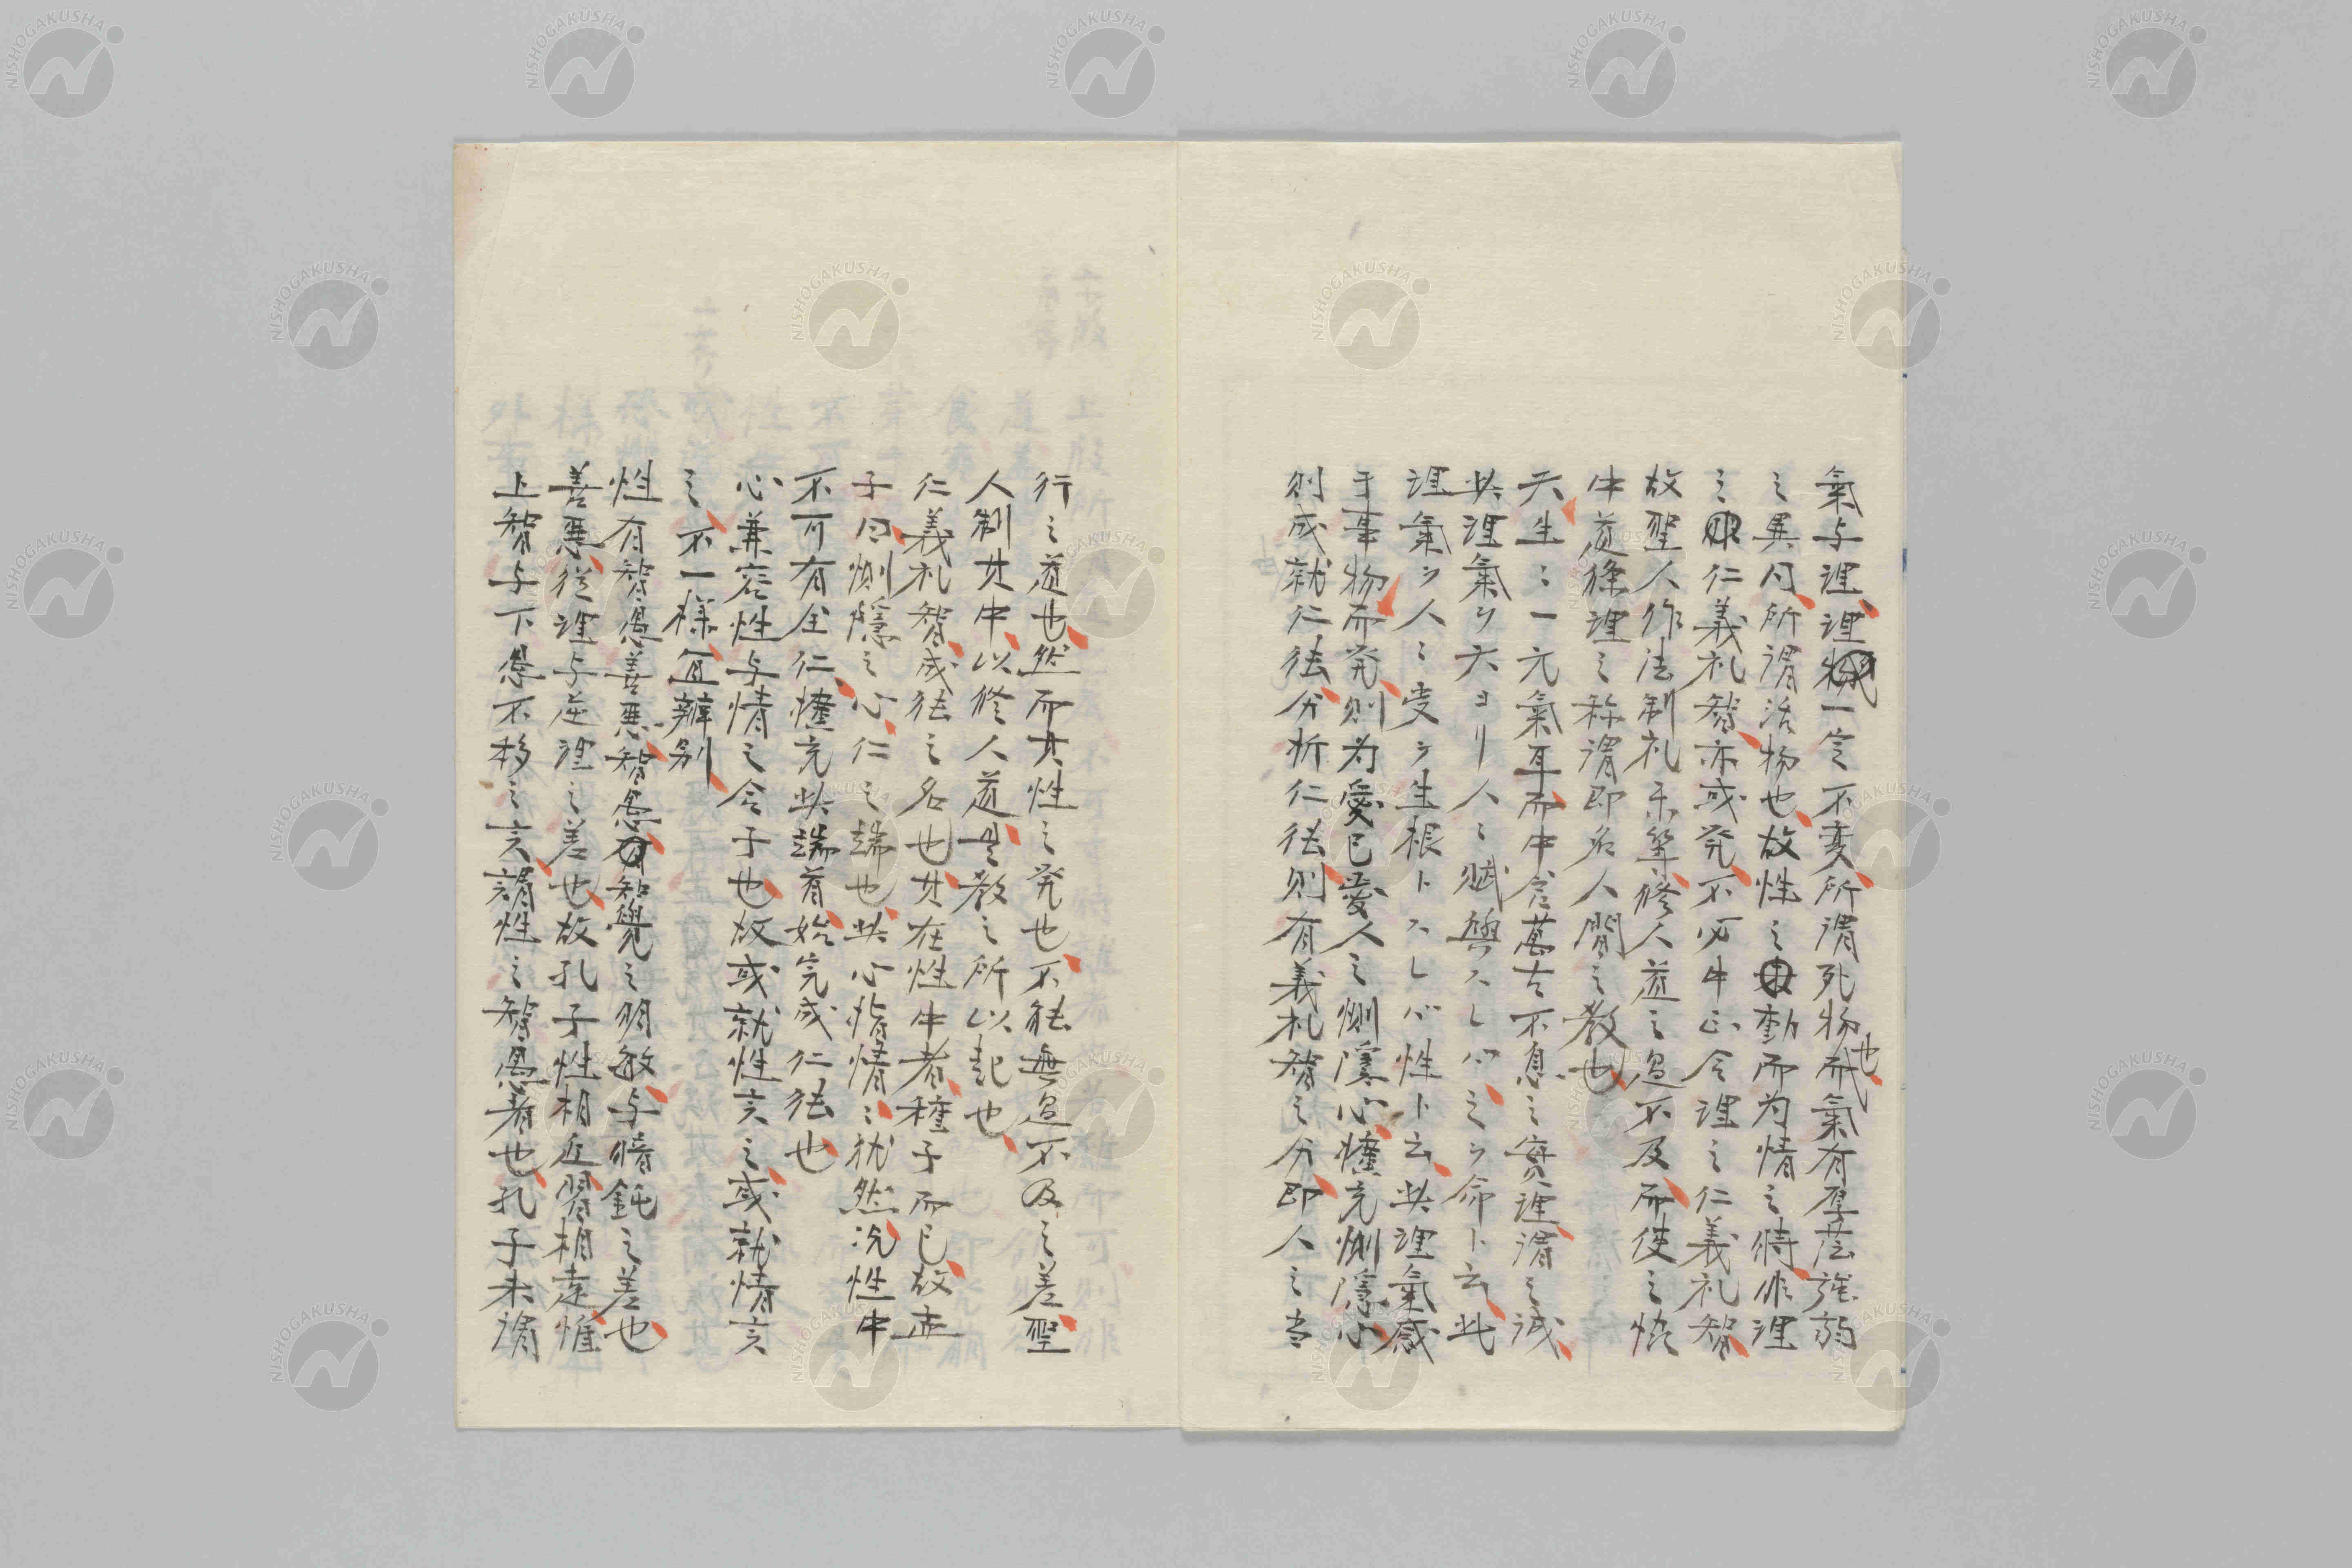 氣与理、理一定不変、所謂死物也、而氣有厚薄強弱
之異同、所謂活物也、故性之動而為情之時、非理
之仁義礼智、亦或発、不必中正合理之仁義礼智、
故聖人作法制礼示準、修人道之過不及、而使之
中道、条理之称謂即名人間之教也、
天生〻一元氣耳、而中含萬古不息之実理、謂之誠、
此理氣ヲ天ヨリ人〻賦與スル心、之ヲ命ト云、此
理氣ヲ人〻受ケ生根トスル心性ト云、此理氣感
于事物而発、則為愛己愛人之惻隠心、擴充惻隠心、
則成就仁徳、分析仁徳、則有義礼智之分、即人之当
行之道也、然而其性之発也、不能無過不及之差、聖
人制其中、以修人道、是教之所以起也、
仁義礼智、成徳之名也、其在性中者、種子而已、故孟
子曰、惻隠之心、仁之端也、此心指情、〻猶然、況性中
不可有全仁、擴充此端有始、完成仁徳也、
心兼容性与情之合子也、故或就性言之、或就情言
之、不一様、宜辨別、
性有智愚善悪、智愚、知覚之明敏、与惰鈍之差也、
善悪、従理与逆理之差也、故孔子性相近、習相遠、惟
上智与下愚不移之言、謂性之智愚者也、孔子未謂